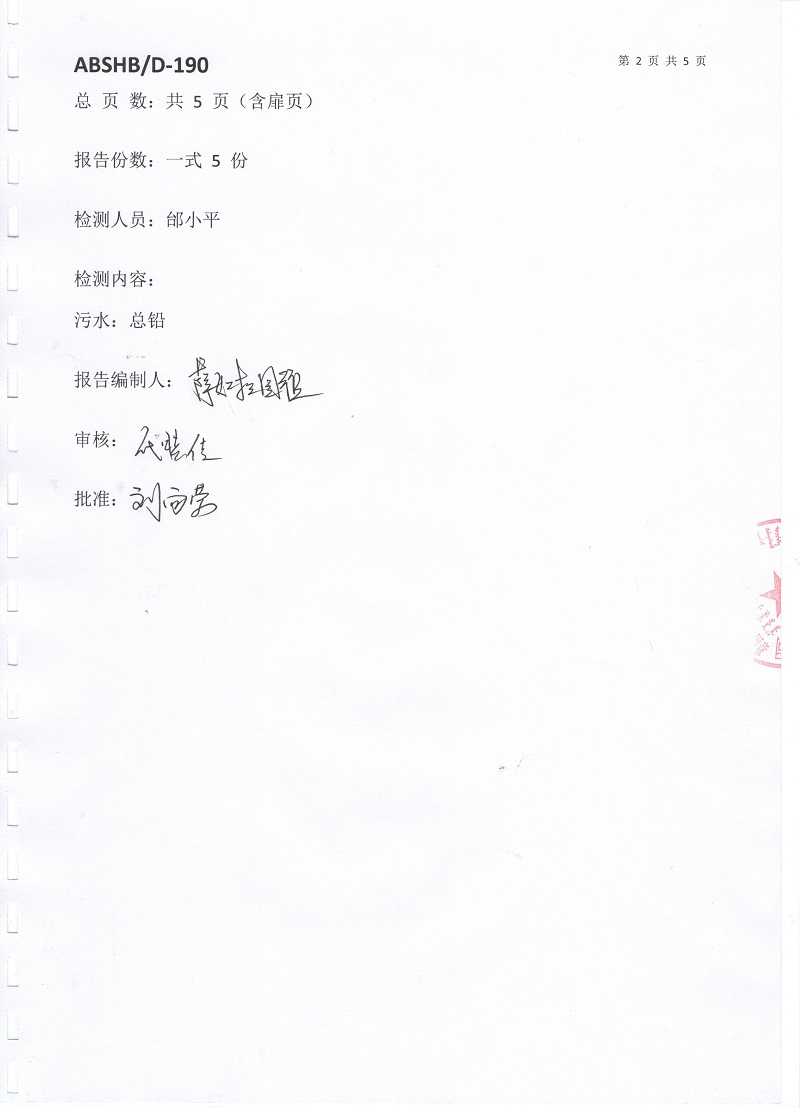 ABSHB/D-190
第 2 页 共 5 页
总 页 数：共 5 页（含扉页）
报告份数：一式 5 份
检测人员：邰小平
检测内容：
污水：总铅
报告编制人：
审核：
批准：